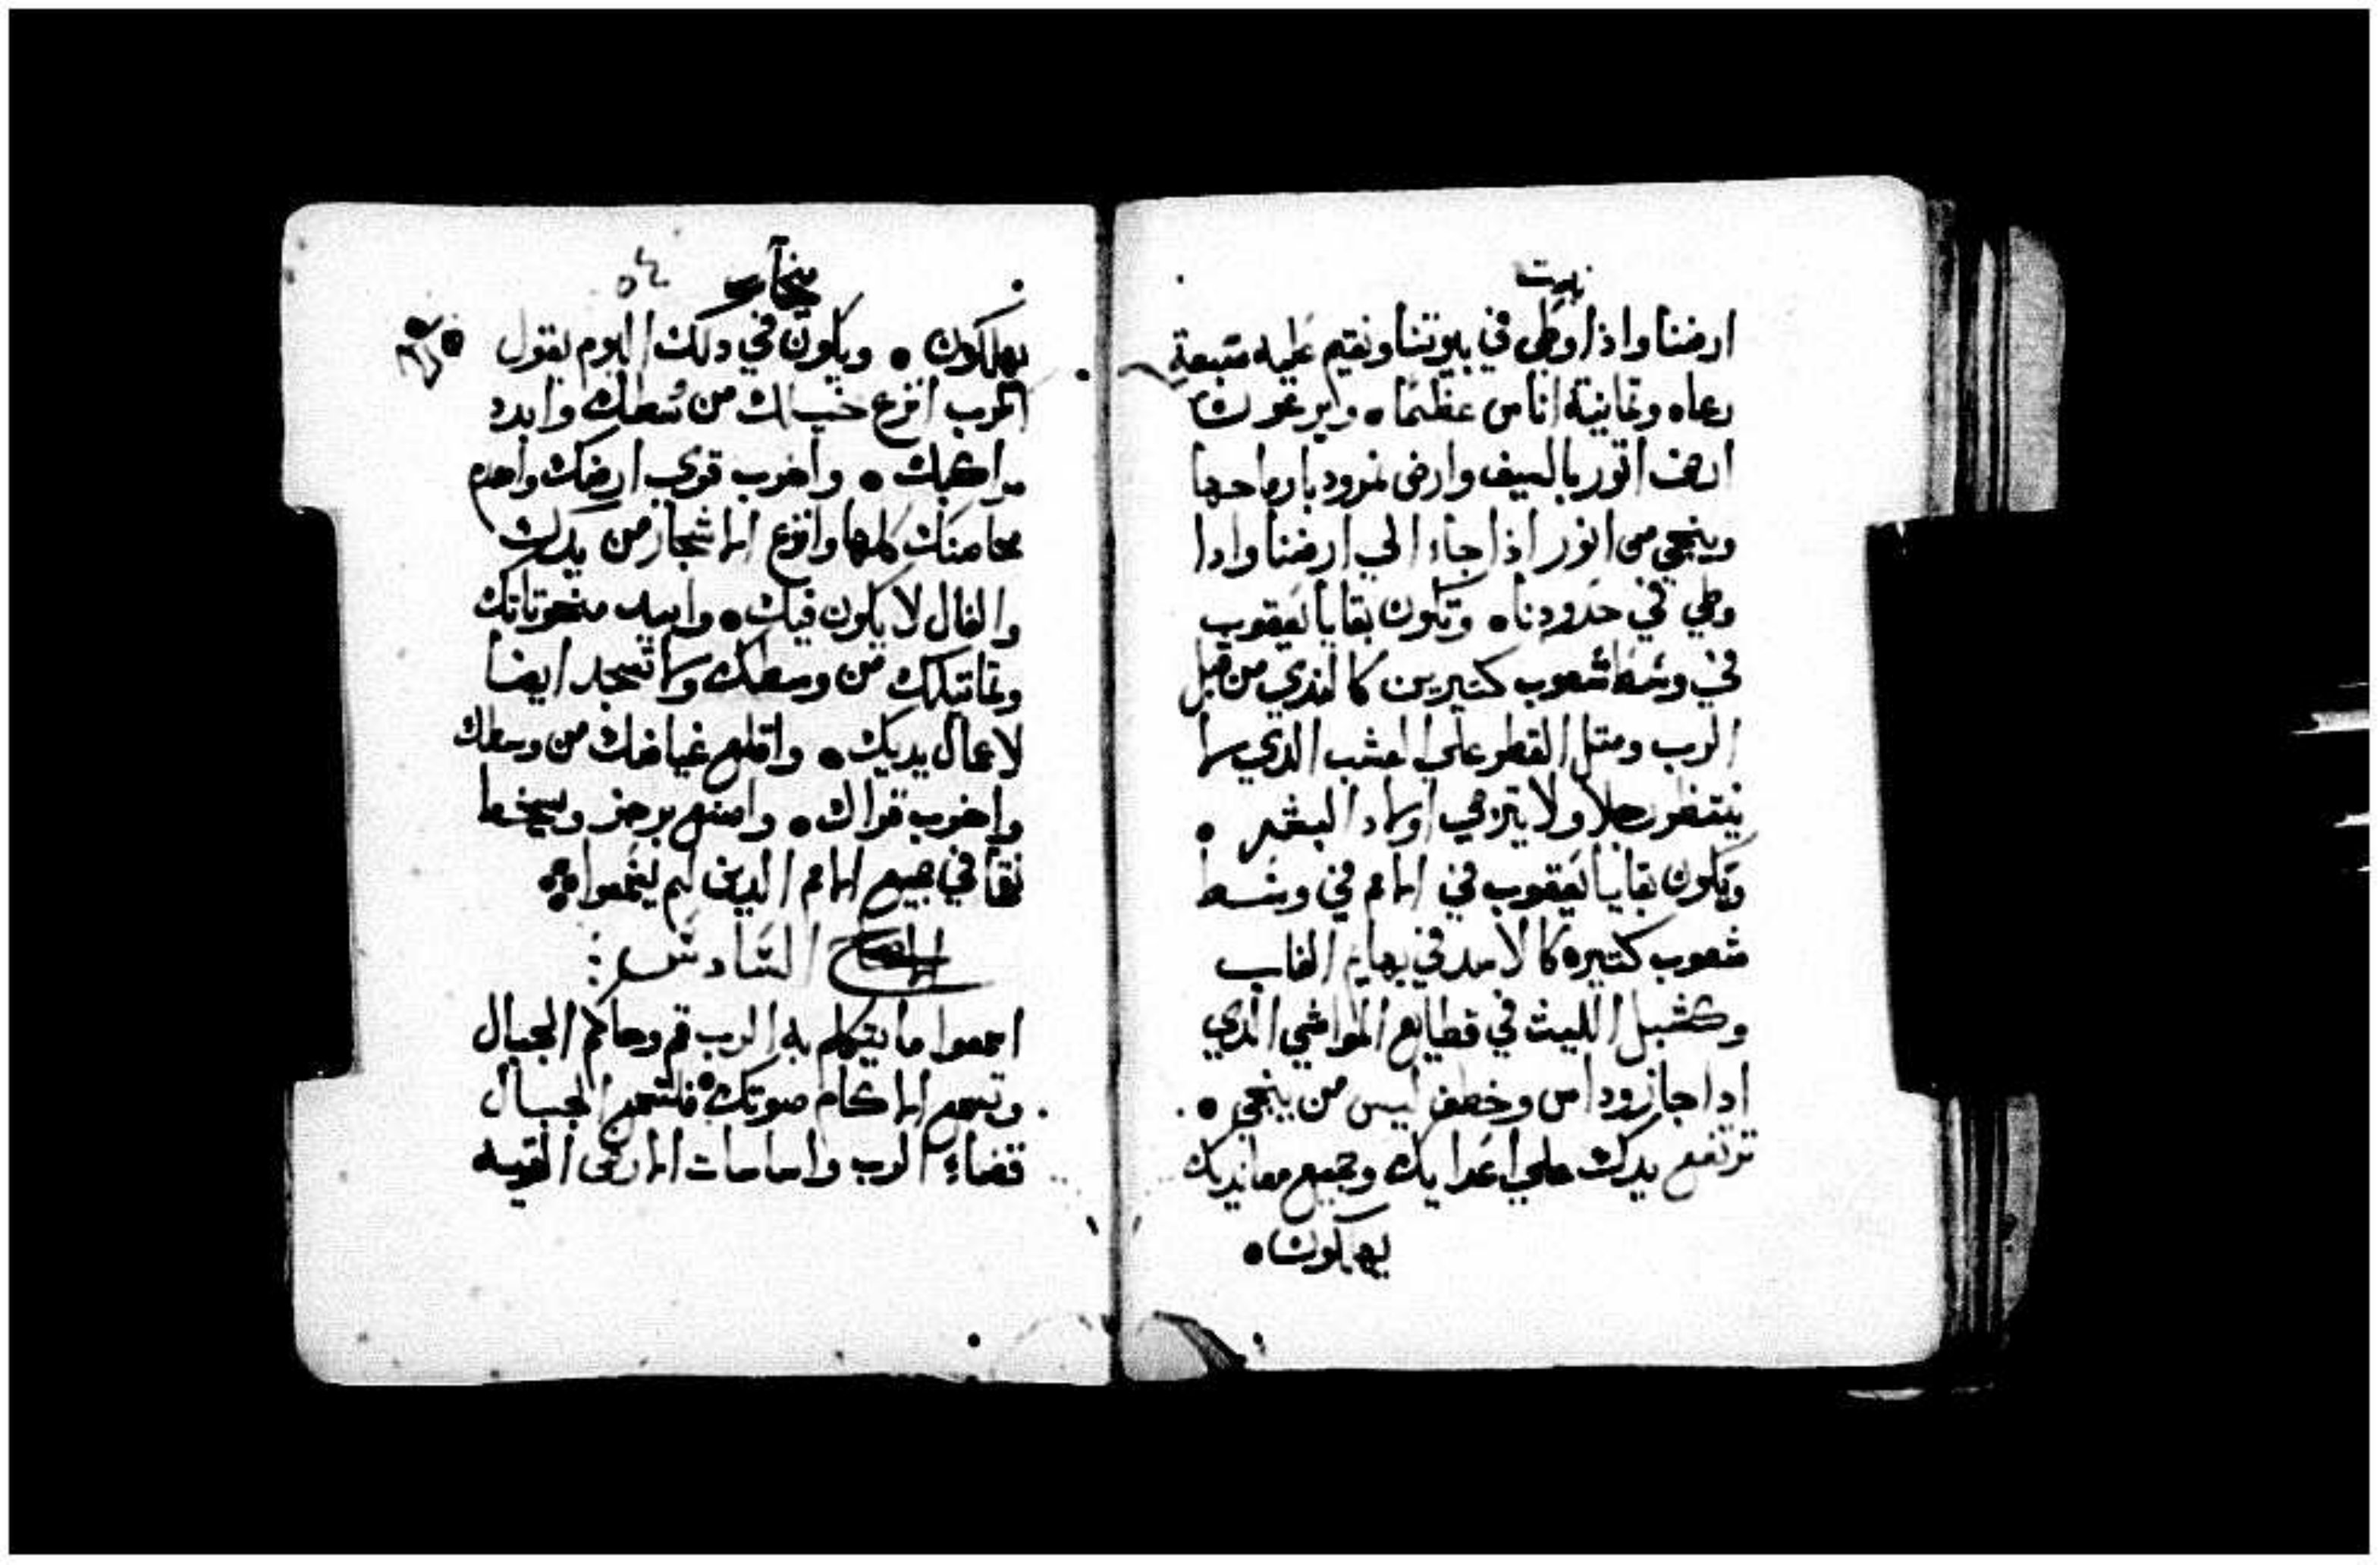 نبوت
ارضنا واذا وطي في بيوتنا ونقيم عليه سبعة
رعاه وثمانية اناس عظما • ويرعون
ارض اتور بالسيف وارض نمرود بارماحها
وينجي من اتور اذا جاء الي ارضنا وادا
وطي في حدودنا • وتكون بقايا يعقوب
في وسط شعوب كتيرين كالندي من قبل
الرب ومتل القطر علي العشب الدي لا
ينتظر رجلا ولا يترجي اولاد البشر •
وتكون بقايا يعقوب في الامم في وسط
شعوب كتيره كالاسد في بهايم الغاب
وكشبل الليث في قطايع المواشي الدي
ادا جاز وداس وخطف ليس من ينجي •
ترتفع يدك علي اعدايك وجميع معانديك
يهلكون •
ميخا ٥٤
يهلكون • ويكون في دلك اليوم يقول
الرب انزع خيلك من وسطك وابدد
مراكبك • واخرب قري ارضك واهدم
محاصنك كلها وانزع الاشجار من يدك
والفال لا يكون فيك • وابيد منحوتاتك
وتماتيلك من وسطك ولا تسجد ايضا
لاعمال يديك • واقلع غياضك من وسطك
واخرب قراك • واصنع برجز وبسخط
نقما في جميع الامم الدين لم يسمعوا
الاصحاح السادس
اسمعوا ما يتكلم به الرب قم وحاكم الجبال
وتسمع الاكام صوتك فلتسمع الجبال
قضاء الرب واساسات الارض القويه